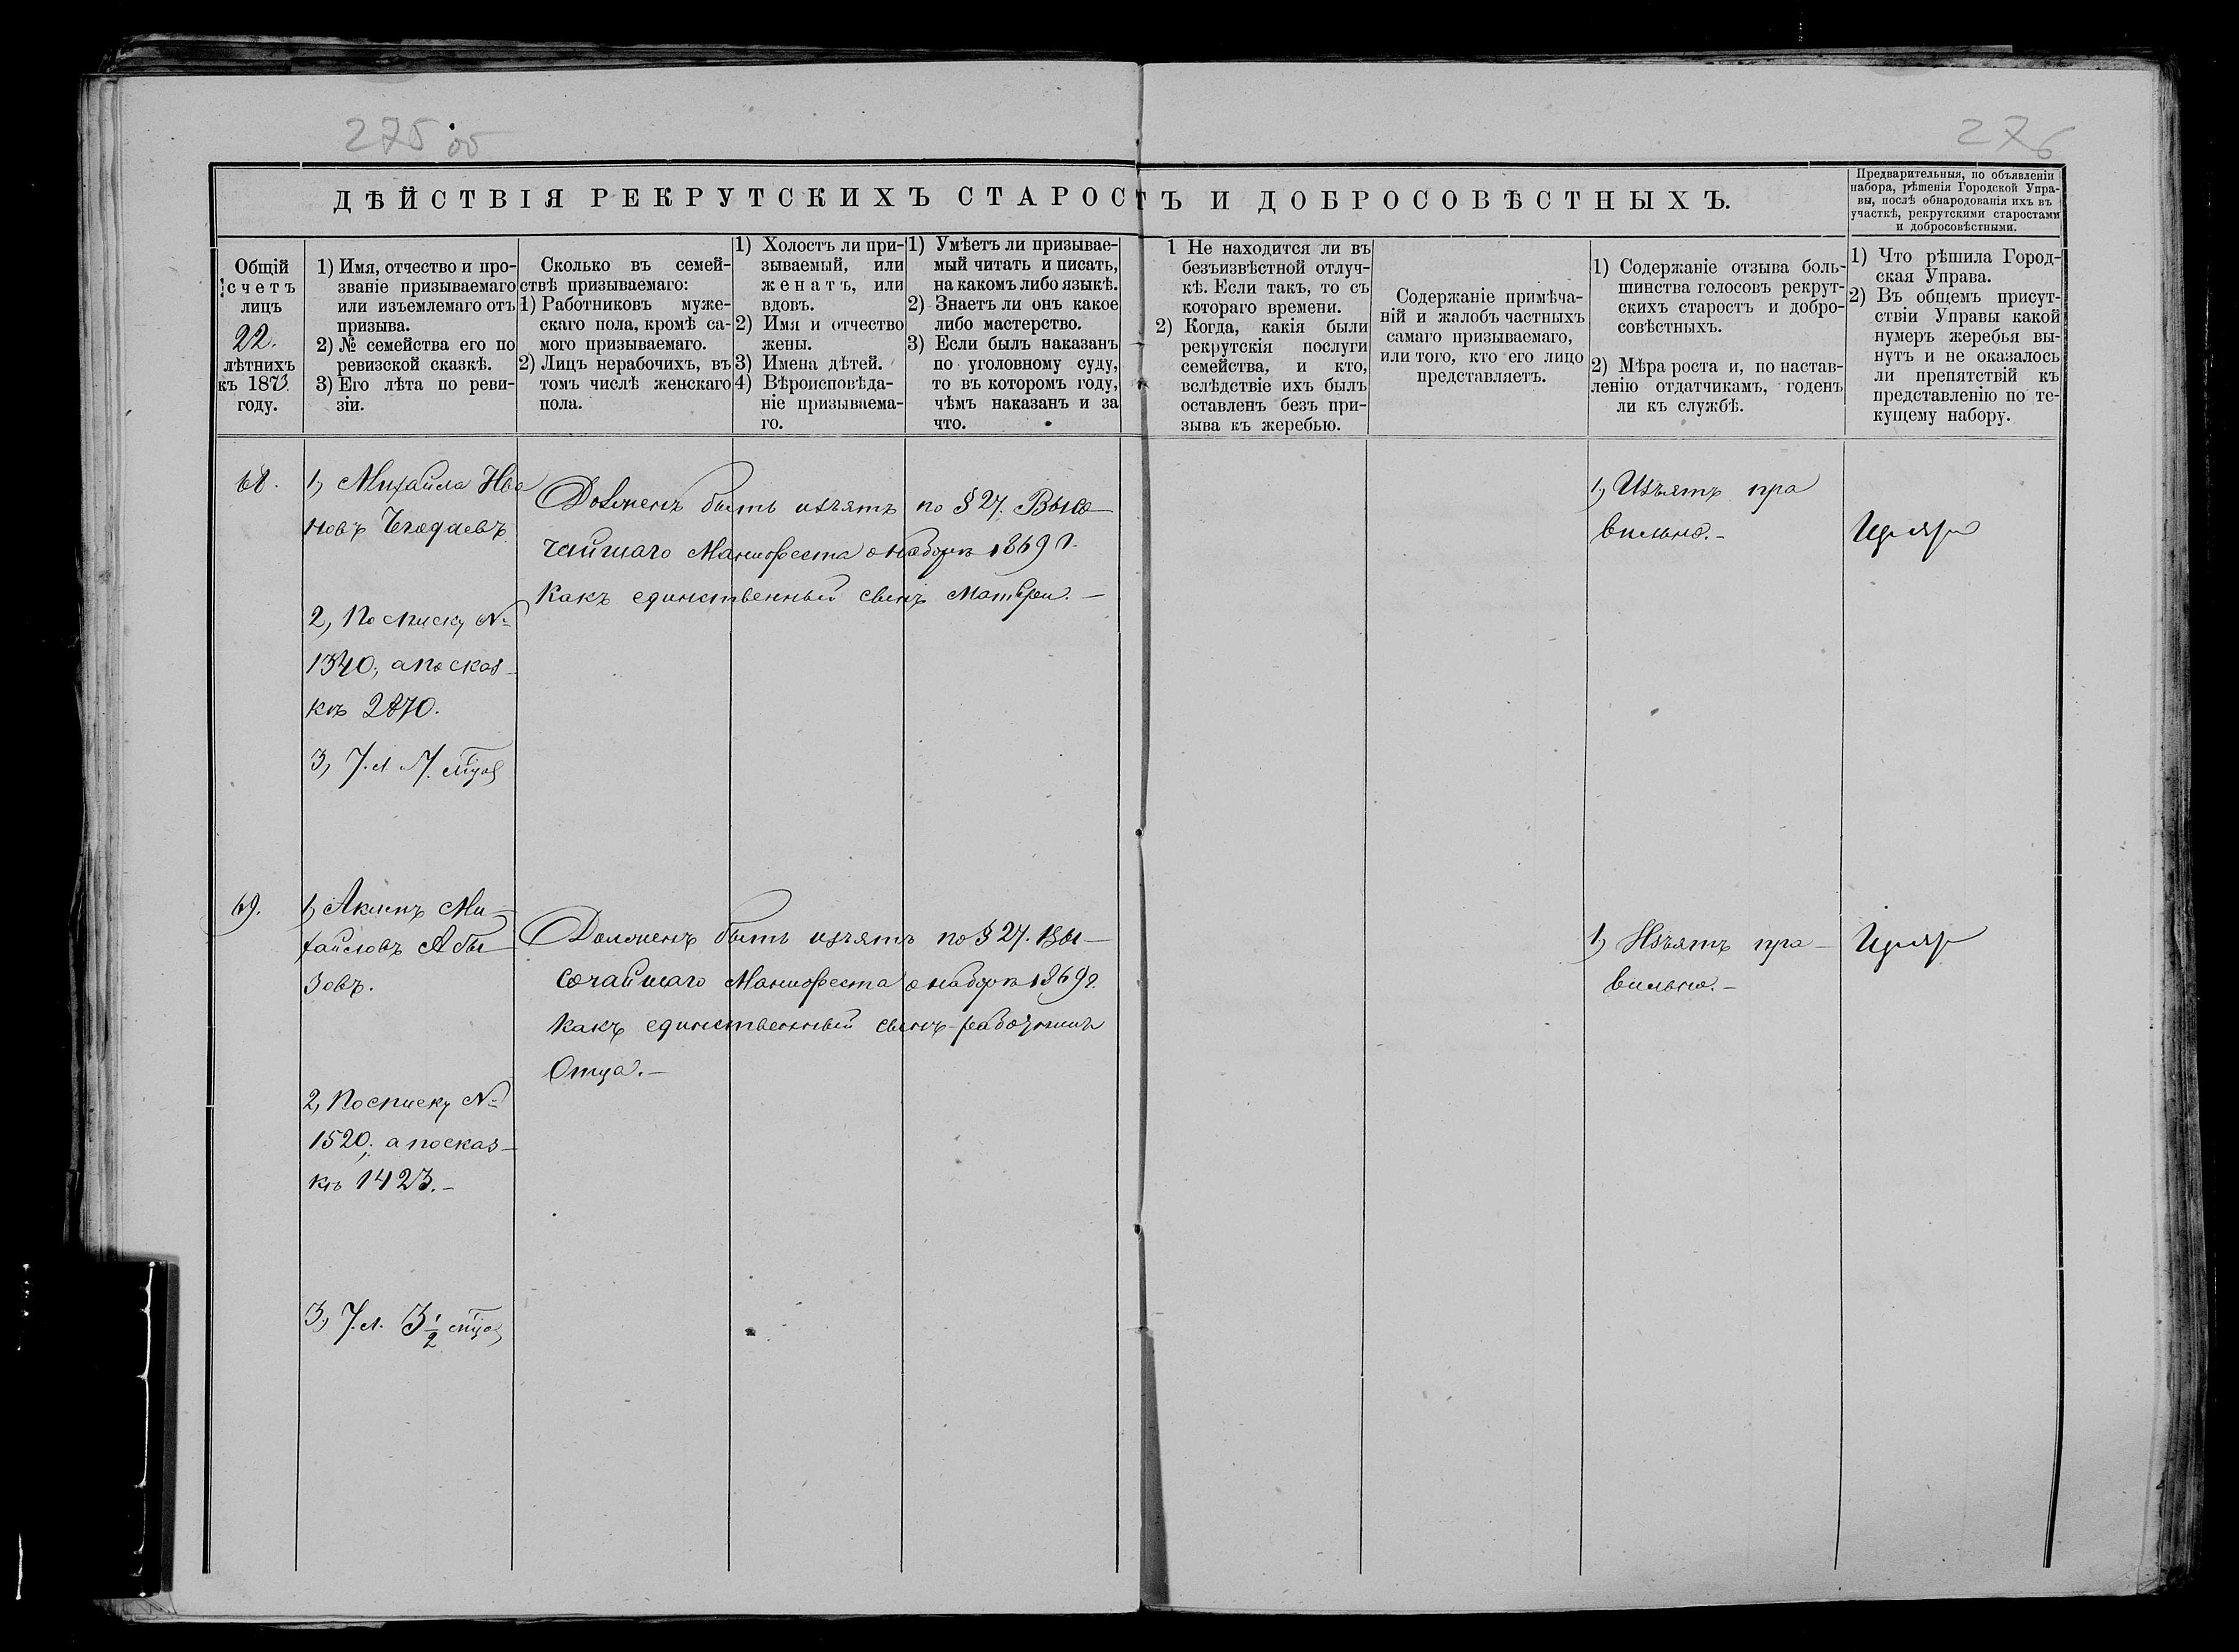 275 об
276
ДѢЙСТВІЯ РЕКРУТСКИХЪ СТАРОСТЪ И ДОБРОСОВѢСТНЫХЪ.
Предварительныя, по объявленіи
набора, рѣшенія Городской Упра-
вы, послѣ обнародованія ихъ въ
участкѣ, рекрутскими старостами
и добросовѣстными.
Общій
счетъ
лицъ
22.
лѣтнихъ
къ 1873.
году.
1) Имя, отчество и про-
званіе призываемаго
или изъемлемаго отъ
призыва.
2) № семейства его по
ревизской сказкѣ.
3) Его лѣта по реви-
зіи.
Сколько въ семей-
ствѣ призываемаго:
1) Работниковъ муже-
скаго пола, кромѣ са-
мого призываемаго.
2) Лицъ нерабочихъ, въ
томъ числѣ женскаго
пола.
1) Холостъ ли при-
зываемый, или
женатъ, или
вдовъ.
2) Имя и отчество
жены.
3) Имена дѣтей.
4) Вѣроисповѣда-
ніе призываема-
го.
1) Умѣетъ ли призывае-
мый читать и писать,
на какомъ либо языкѣ.
2) Знаетъ ли онъ какое
либо мастерство.
3) Если былъ наказанъ
по уголовному суду,
то въ которомъ году,
чѣмъ наказанъ и за
что.
1 Не находится ли въ
безъизвѣстной отлуч-
кѣ. Если такъ, то съ
котораго времени.
2) Когда, какія были
рекрутскія послуги
семейства, и кто,
вслѣдствіе ихъ былъ
оставленъ безъ при-
зыва къ жеребью.
Содержаніе примѣча-
ній и жалобъ частныхъ
самаго призываемаго,
или того, кто его лицо
представляетъ.
1) Содержаніе отзыва боль-
шинства голосовъ рекрут-
скихъ старостъ и добро-
совѣстныхъ.
2) Мѣра роста и, по настав-
ленію отдатчикамъ, годенъ
ли къ службѣ.
1) Что рѣшила Город-
ская Управа.
2) Въ общемъ присут-
ствіи Управы какой
нумеръ жеребья вы-
нутъ и не оказалось
ли препятствій къ
представленію по те-
кущему набору.
68.
1, Михайла Ива
новъ Чегодаевъ.
2, По списку №
1340; а по сказ-
кѣ 2870.
3, 7. л. 7.
Долженъ быть изъятъ по § 27. Высо-
чайшаго Манифеста о наборѣ 1869 г.
какъ единственный сынъ матери. -
1, Изъятъ пра
вильно. -
69.
1, Акимъ Ми-
хайловъ Абы-
зовъ.
2, По списку №
1520; а по сказ-
кѣ 1423. -
3, 7. л. 3 1/2
Долженъ быть изъятъ по § 27. Вы-
сочайшаго Манифеста о наборѣ 1869 г.
какъ единственный сынъ-работникъ
Отца. -
1, Изъятъ пра-
вильно. -